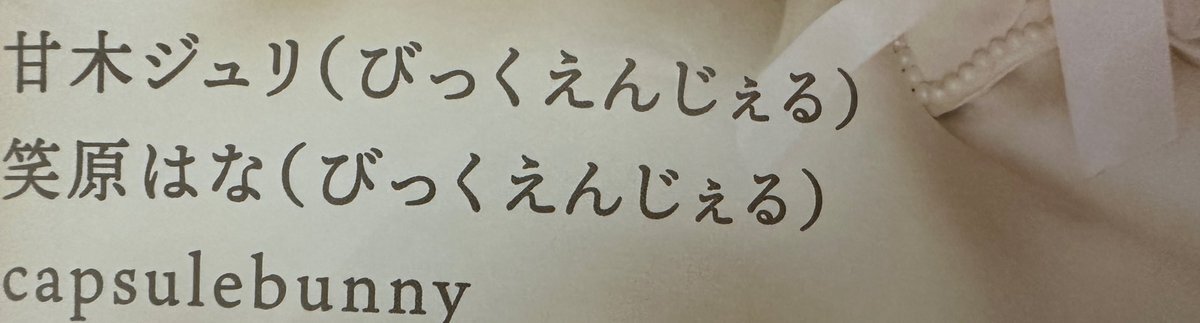 甘木ジュリ(びっくえんじぇる)
笑原はな(びっくえんじぇる)
capsulebunny